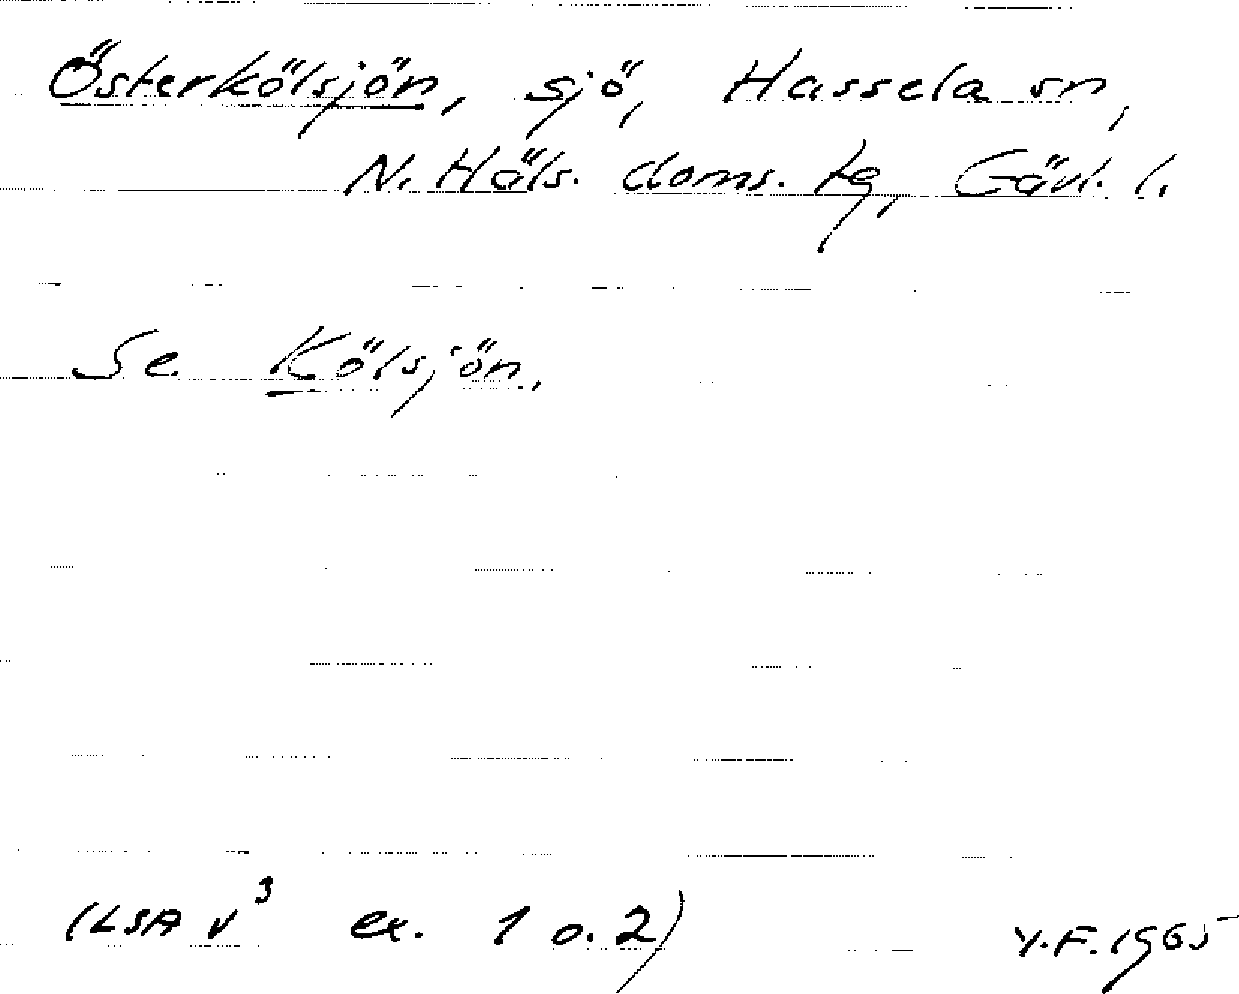 Österkölsjön, sjö, Hassela sn,
N. Häls. doms. tg, Gävl. l.
Se Kölsjön.
(LSA v³ ex. 1 o. 2) Y.F. 1965